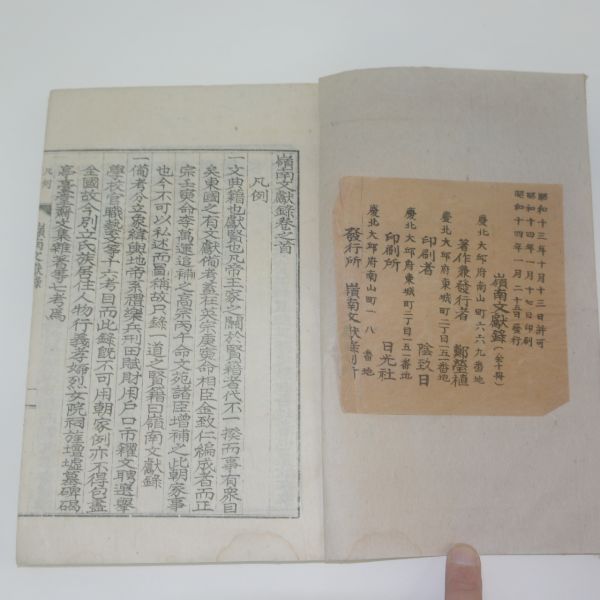 昭和十三年十月十三日許可
昭和十四年一月十七日印刷
昭和十四年一月二十五日發行
嶺南文獻錄(全十冊)
慶北大邱府南山町六六九番地
著作兼發行者 鄭瑩植
慶北大邱府東城町二丁目一五一番地
印刷者 陰致日
慶北大邱府東城町二丁目一五一番地
印刷所 日光社
慶北大邱府南山町一八番地
發行所 嶺南文獻錄刊所
嶺南文獻錄卷之首
凡例
一文典籍也獻賢也凡帝王家之關於賢籍者代不一揆而事有衆目
矣東國之有文獻備考蓋在英宗庚寅命相臣金致仁編成者而正
宗壬寅命李萬運追補之高宗丙午命文苑諸臣增補之此朝家事
也今不可以私述而冒稱故只錄一道之賢籍曰嶺南文獻錄
一備考分立象緯輿地帝系禮樂兵刑田賦財用戶口市糴交聘選擧
學校官職藝文等十六考目而此錄旣不可用朝家例亦不得包盡
全國故今別立氏族居住人物行義孝婦烈女院祠旌壇墟墓碑碣
亭臺堂齋文集雜著等七考焉
凡例
嶺南文獻錄
一